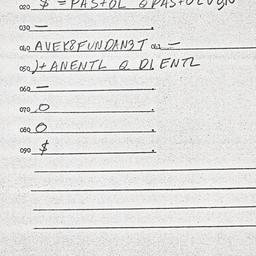 020 $ = PASTOL & PASTOLVGN
030 —
040 AVEK8FUNDAN3T 043 —
050 )+ ANENTL & DI ENTL
060 —
070 0
080 0
090 $